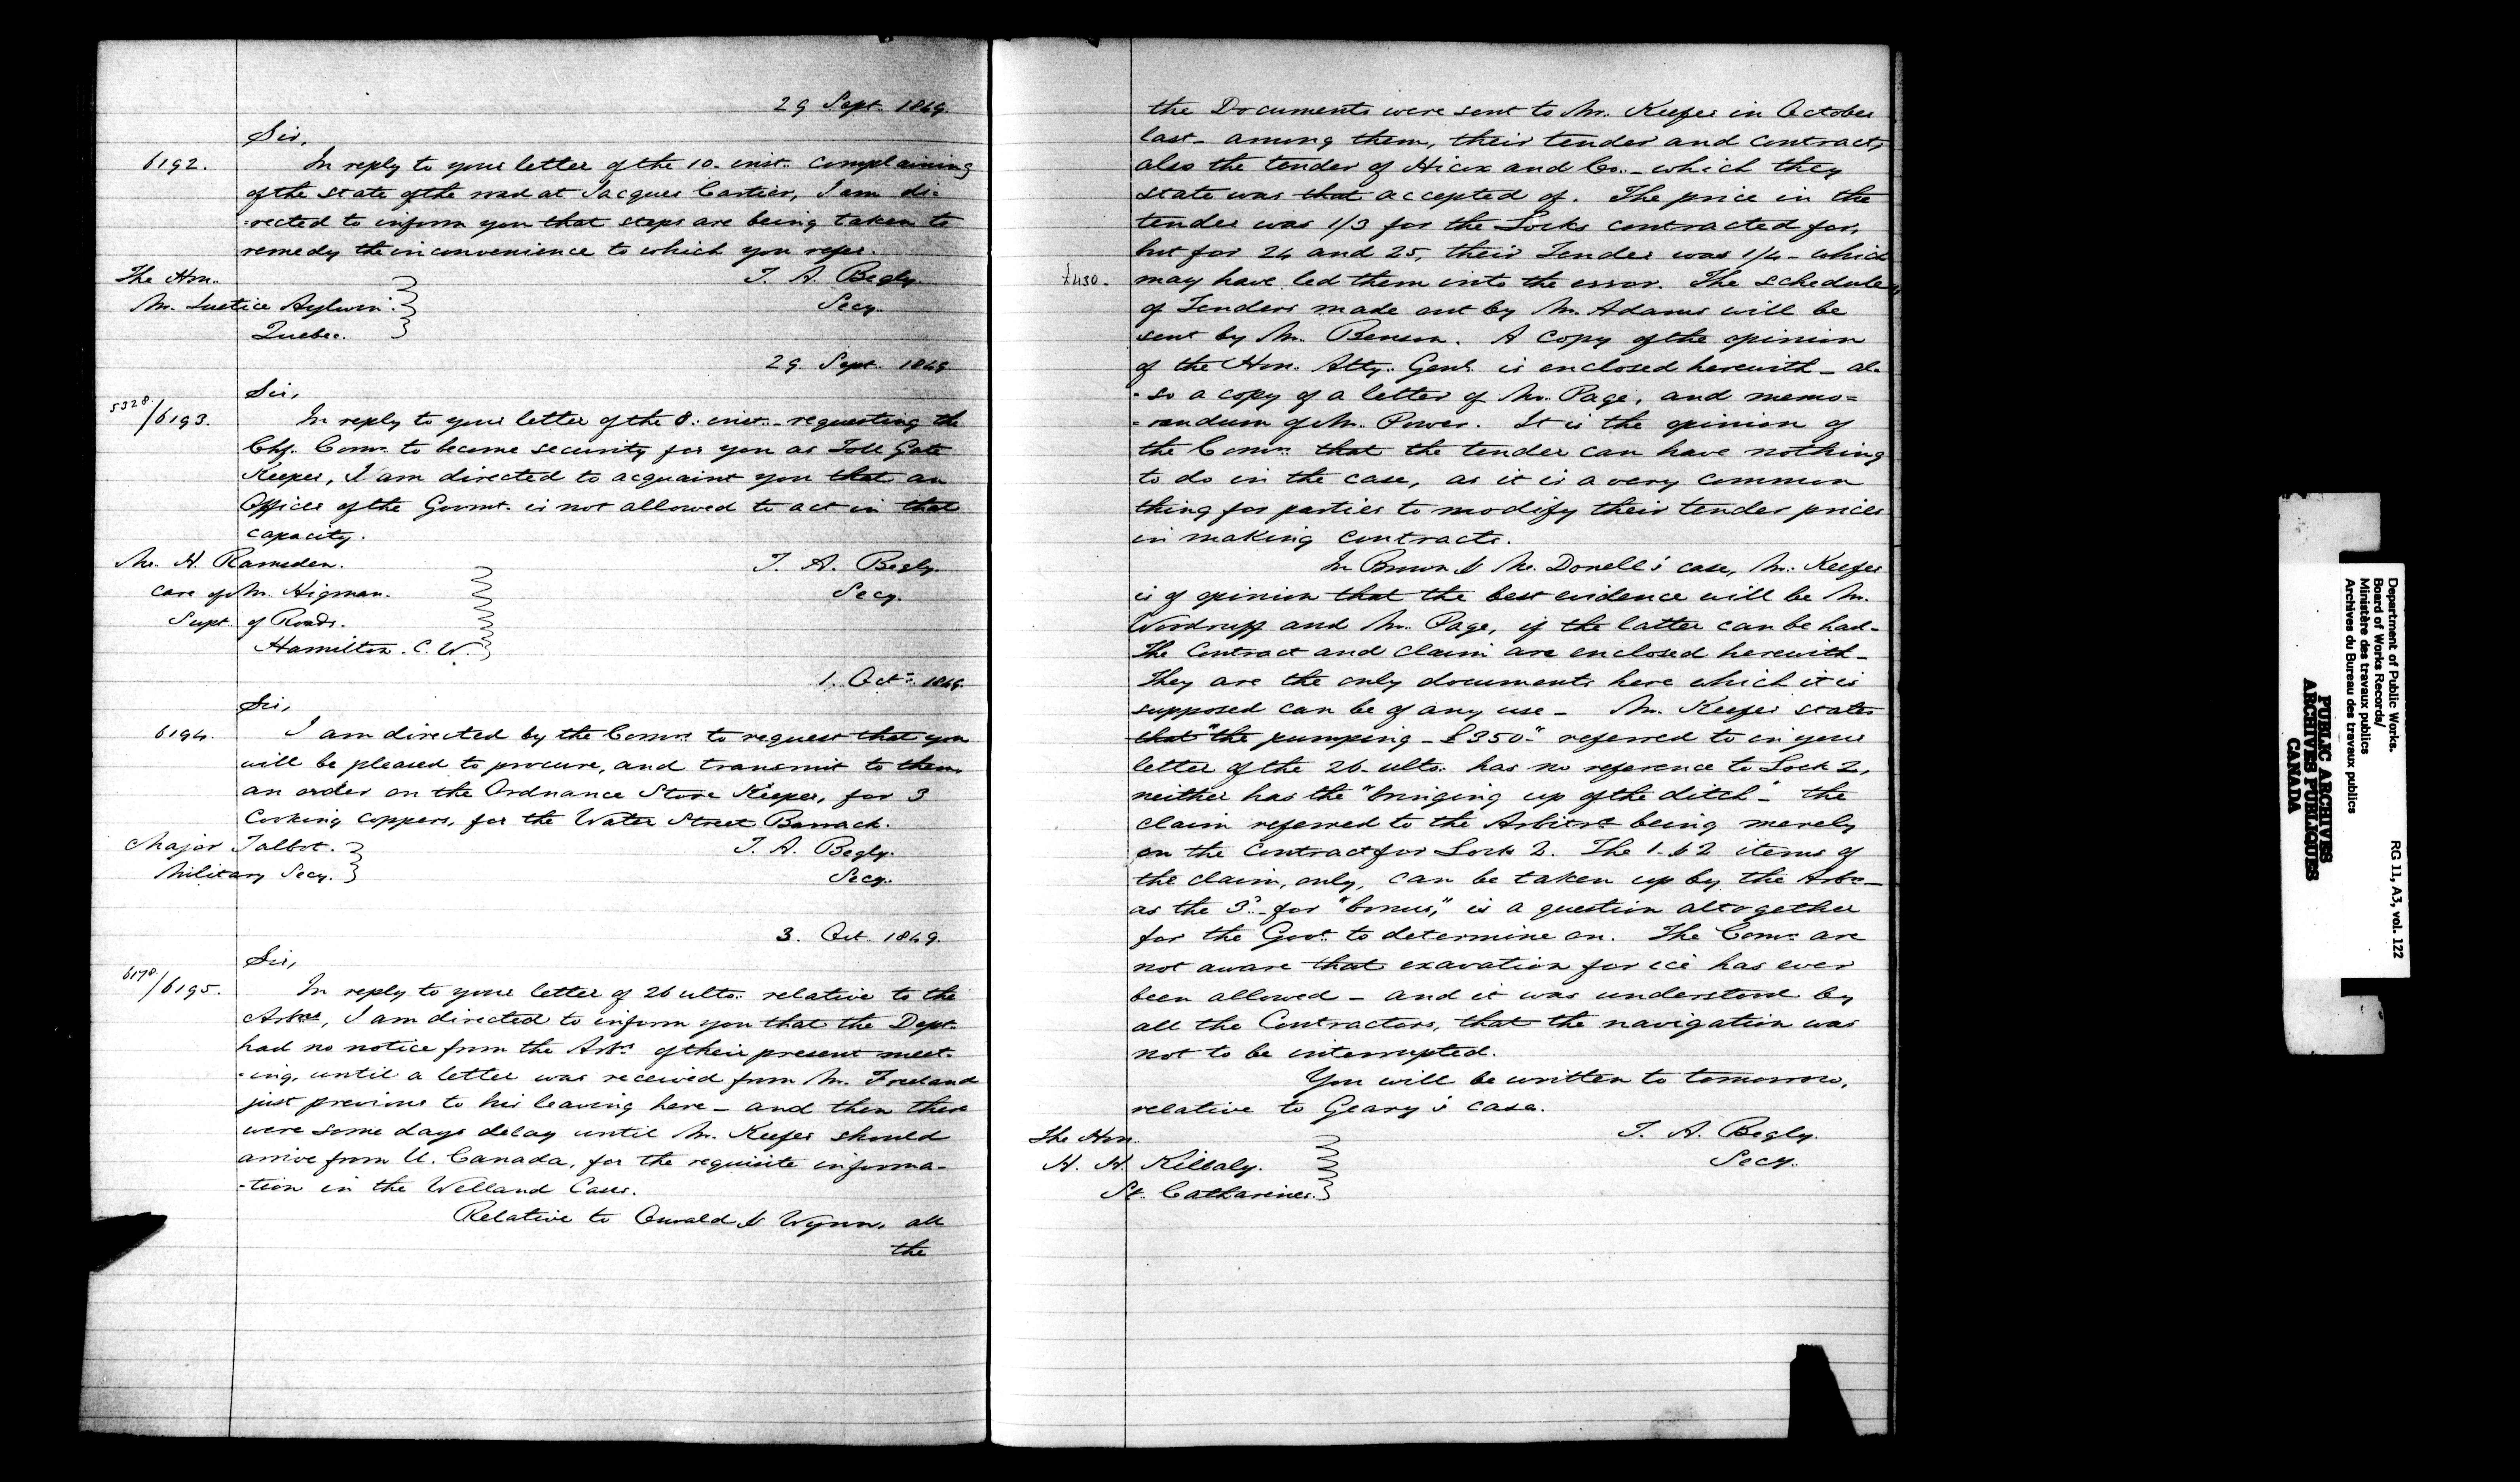 29 Sept. 1849.
Sir,
6192. In reply to your letter of the 10. inst. complaining
of the state of the road at Jacques Cartier, I am di-
-rected to inform you that steps are being taken to
remedy the inconvenience to which you refer.
The Hon. T. A. Begly.
Mr. Justice Aylwin. Secy.
Quebec.
29. Sept. 1849.
Sir,
5328./6193. In reply to your letter of the 8. inst. requesting the
Chf. Comr. to become security for you as Toll Gate
Keeper, I am directed to acquaint you that an
Officer of the Govmt. is not allowed to act in that
capacity.
Mr. H. Ramsden. T. A. Begly.
care of Mr. Higman. Secy.
Supt. of Roads.
Hamilton. C. W.
1. Oct. 1849.
Sir,
6194. I am directed by the Comrs. to request that you
will be pleased to procure, and transmit to them,
an order on the Ordnance Store Keeper, for 3
Cooking coppers, for the Water Street Barrack.
Major Talbot. T. A. Begly.
Military Secy. Secy.
3. Oct. 1849.
Sir,
6178/6195. In reply to your letter of 26 ulto. relative to the
Arbrs, I am directed to inform you that the Dept.
had no notice from the Arbrs. of their present meet-
-ing, until a letter was received from Mr. Freeland
just previous to his leaving here – and then there
were some days delay until Mr. Keefer should
arrive from U. Canada, for the requisite informa-
-tion in the Welland Cases.
Relative to Oswald & Wynn, all
the
the Documents were sent to Mr. Keefer in October
last – among them, their tender and contract,
also the tender of Hicox and Co. – which they
state was that accepted of. The price in the
tender was 1/3 for the Locks contracted for,
but for 24 and 25, their Tender was 1/4 – which
£430. may have led them into the error. The schedule
of Tenders made out by Mr. Adams will be
sent by Mr. Benson. A copy of the opinion
of the Hon. Atty. Genl. is enclosed herewith – al-
-so a copy of a letter of Mr. Page, and memo=
=randum of Mr. Power. It is the opinion of
the Comrs. that the tender can have nothing
to do in the case, as it is a very common
thing for parties to modify their tender prices
in making contracts.
In Brown & Mc. Donell's case, Mr. Keefer
is of opinion that the best evidence will be Mr.
Woodruff and Mr. Page, if the latter can be had –
The Contract and Claim are enclosed herewith –
They are the only documents here which it is
supposed can be of any use – Mr. Keefer states
that "the pumping – £350 –" referred to in your
letter of the 26. ulto. has no reference to Lock 2,
neither has the "bringing up of the ditch" – the
claim referred to the Arbitrs. being merely
on the Contract for Lock 2. The 1. & 2 items of
the claim, only, can be taken up by the Arbrs –
as the 3d. – for "bonus," is a question altogether
for the Govt. to determine on. The Comrs. are
not aware that exavation for ice has ever
been allowed – and it was understood by
all the Contractors, that the navigation was
not to be interrupted.
You will be written to tomorrow,
relative to Geary's case.
The Hon. T. A. Begly.
H. H. Killaly. Secy.
St. Catharines.
Department of Public Works.
Board of Works Records/
Ministère des travaux publics
Archives du Bureau des travaux publics
RG 11, A3, vol. 122
PUBLIC ARCHIVES
ARCHIVES PUBLIQUES
CANADA